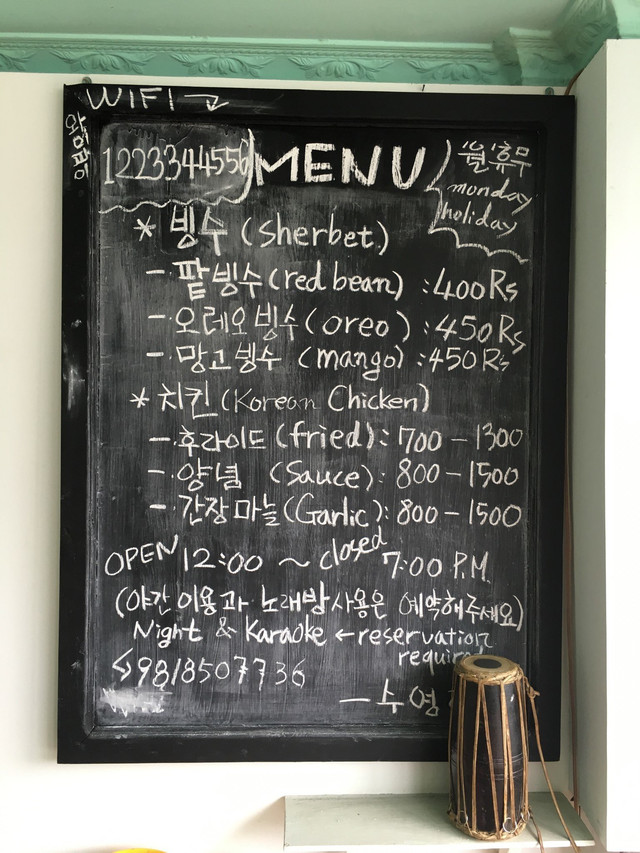 WIFI →
1223344556
MENU
'월'휴무
monday
holiday
* 빙수 (Sherbet)
- 팥빙수 (red bean) : 400 Rs
- 오레오빙수 (oreo) : 450 Rs
- 망고빙수 (mango) : 450 Rs
* 치킨 (Korean Chicken)
- 후라이드 (fried) : 700 - 1300
- 양념 (Sauce) : 800 - 1500
- 간장마늘 (Garlic) : 800 - 1500
OPEN 12:00 ~ closed 7:00 P.M.
(야간이용과 노래방사용은 예약해주세요)
Night & Karaoke ← reservation
↳ 9818507736
- 수영